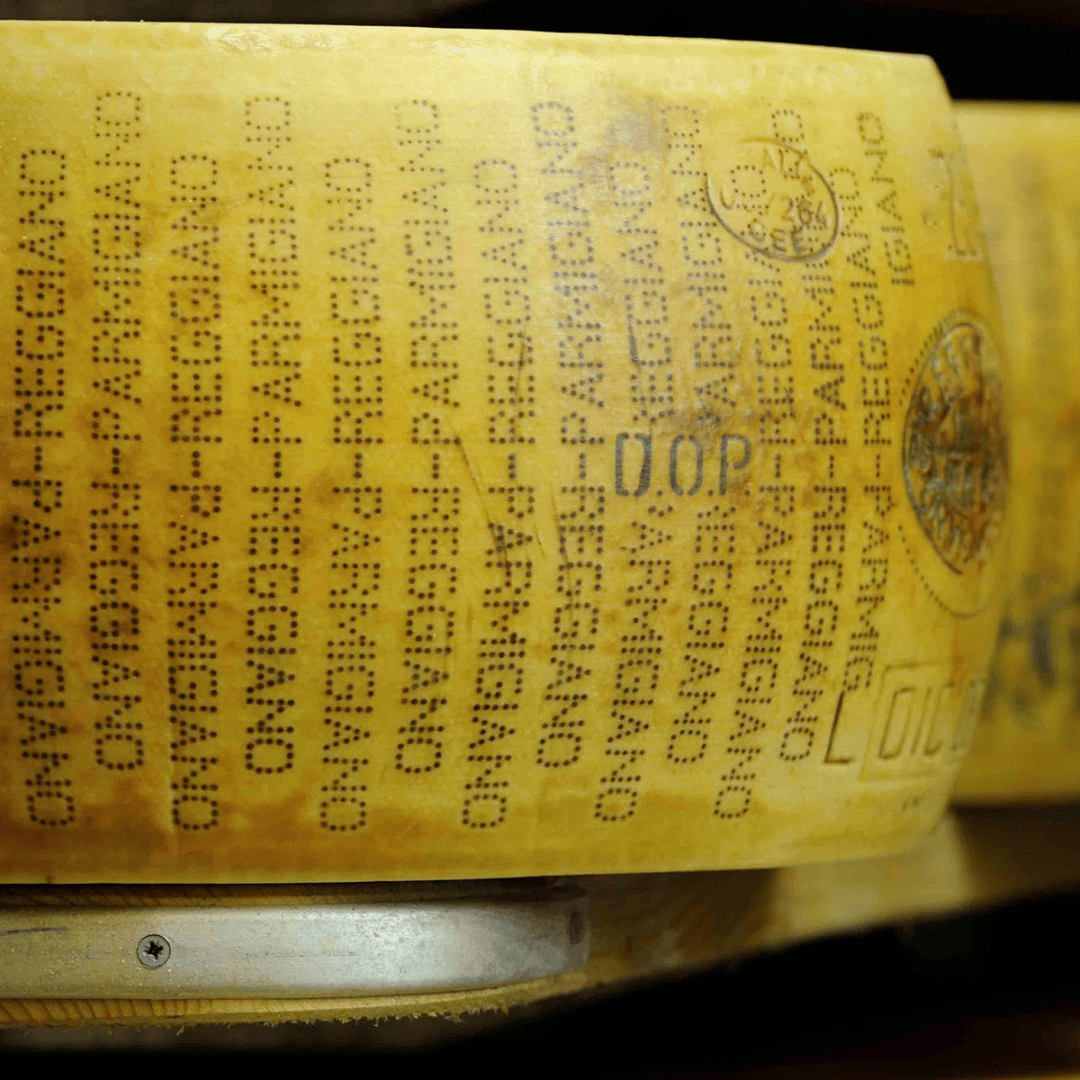 REGGIANO-PARMIGIANO
PARMIGIANO-REGGIANO
REGGIANO-PARMIGIANO
PARMIGIANO-REGGIANO
REGGIANO-PARMIGIANO
PARMIGIANO-REGGIANO
REGGIANO-PARMIGIANO
PARMIGIANO-REGGIANO
REGGIANO-PARMIGIANO
PARMIGIANO-REGGIANO
REGGIANO-PARMIGIANO
PARMI-REGGIANO
REGGIANO-PARMIG
IGIANO
D.O.P.
264
CEE
DIC